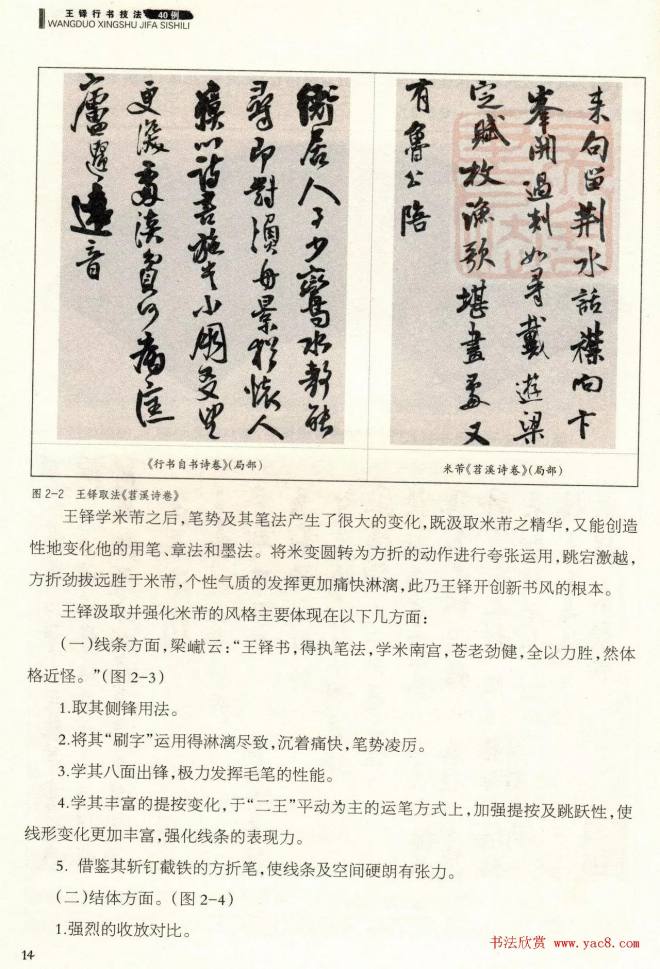 王铎行书技法 40例
WANGDUO XINGSHU JIFA SISHILI
来句留荆水話襟向卞
峯開過剡如尋戴遊梁
定賦枚漁歌堪畫處又
有魯公陪
《行书自书诗卷》(局部)
米芾《苕溪诗卷》(局部)
图 2-2 王铎取法《苕溪诗卷》
王铎学米芾之后,笔势及其笔法产生了很大的变化,既汲取米芾之精华,又能创造
性地变化他的用笔、章法和墨法。将米变圆转为方折的动作进行夸张运用,跳宕激越,
方折劲拔远胜于米芾,个性气质的发挥更加痛快淋漓,此乃王铎开创新书风的根本。
王铎汲取并强化米芾的风格主要体现在以下几方面:
(一)线条方面,梁巘云:“王铎书,得执笔法,学米南宫,苍老劲健,全以力胜,然体
格近怪。”(图 2-3)
1.取其侧锋用法。
2.将其“刷字”运用得淋漓尽致,沉着痛快,笔势凌厉。
3.学其八面出锋,极力发挥毛笔的性能。
4.学其丰富的提按变化,于“二王”平动为主的运笔方式上,加强提按及跳跃性,使
线形变化更加丰富,强化线条的表现力。
5. 借鉴其斩钉截铁的方折笔,使线条及空间硬朗有张力。
(二)结体方面。(图 2-4)
1.强烈的收放对比。
14
书法欣赏 www.yac8.com